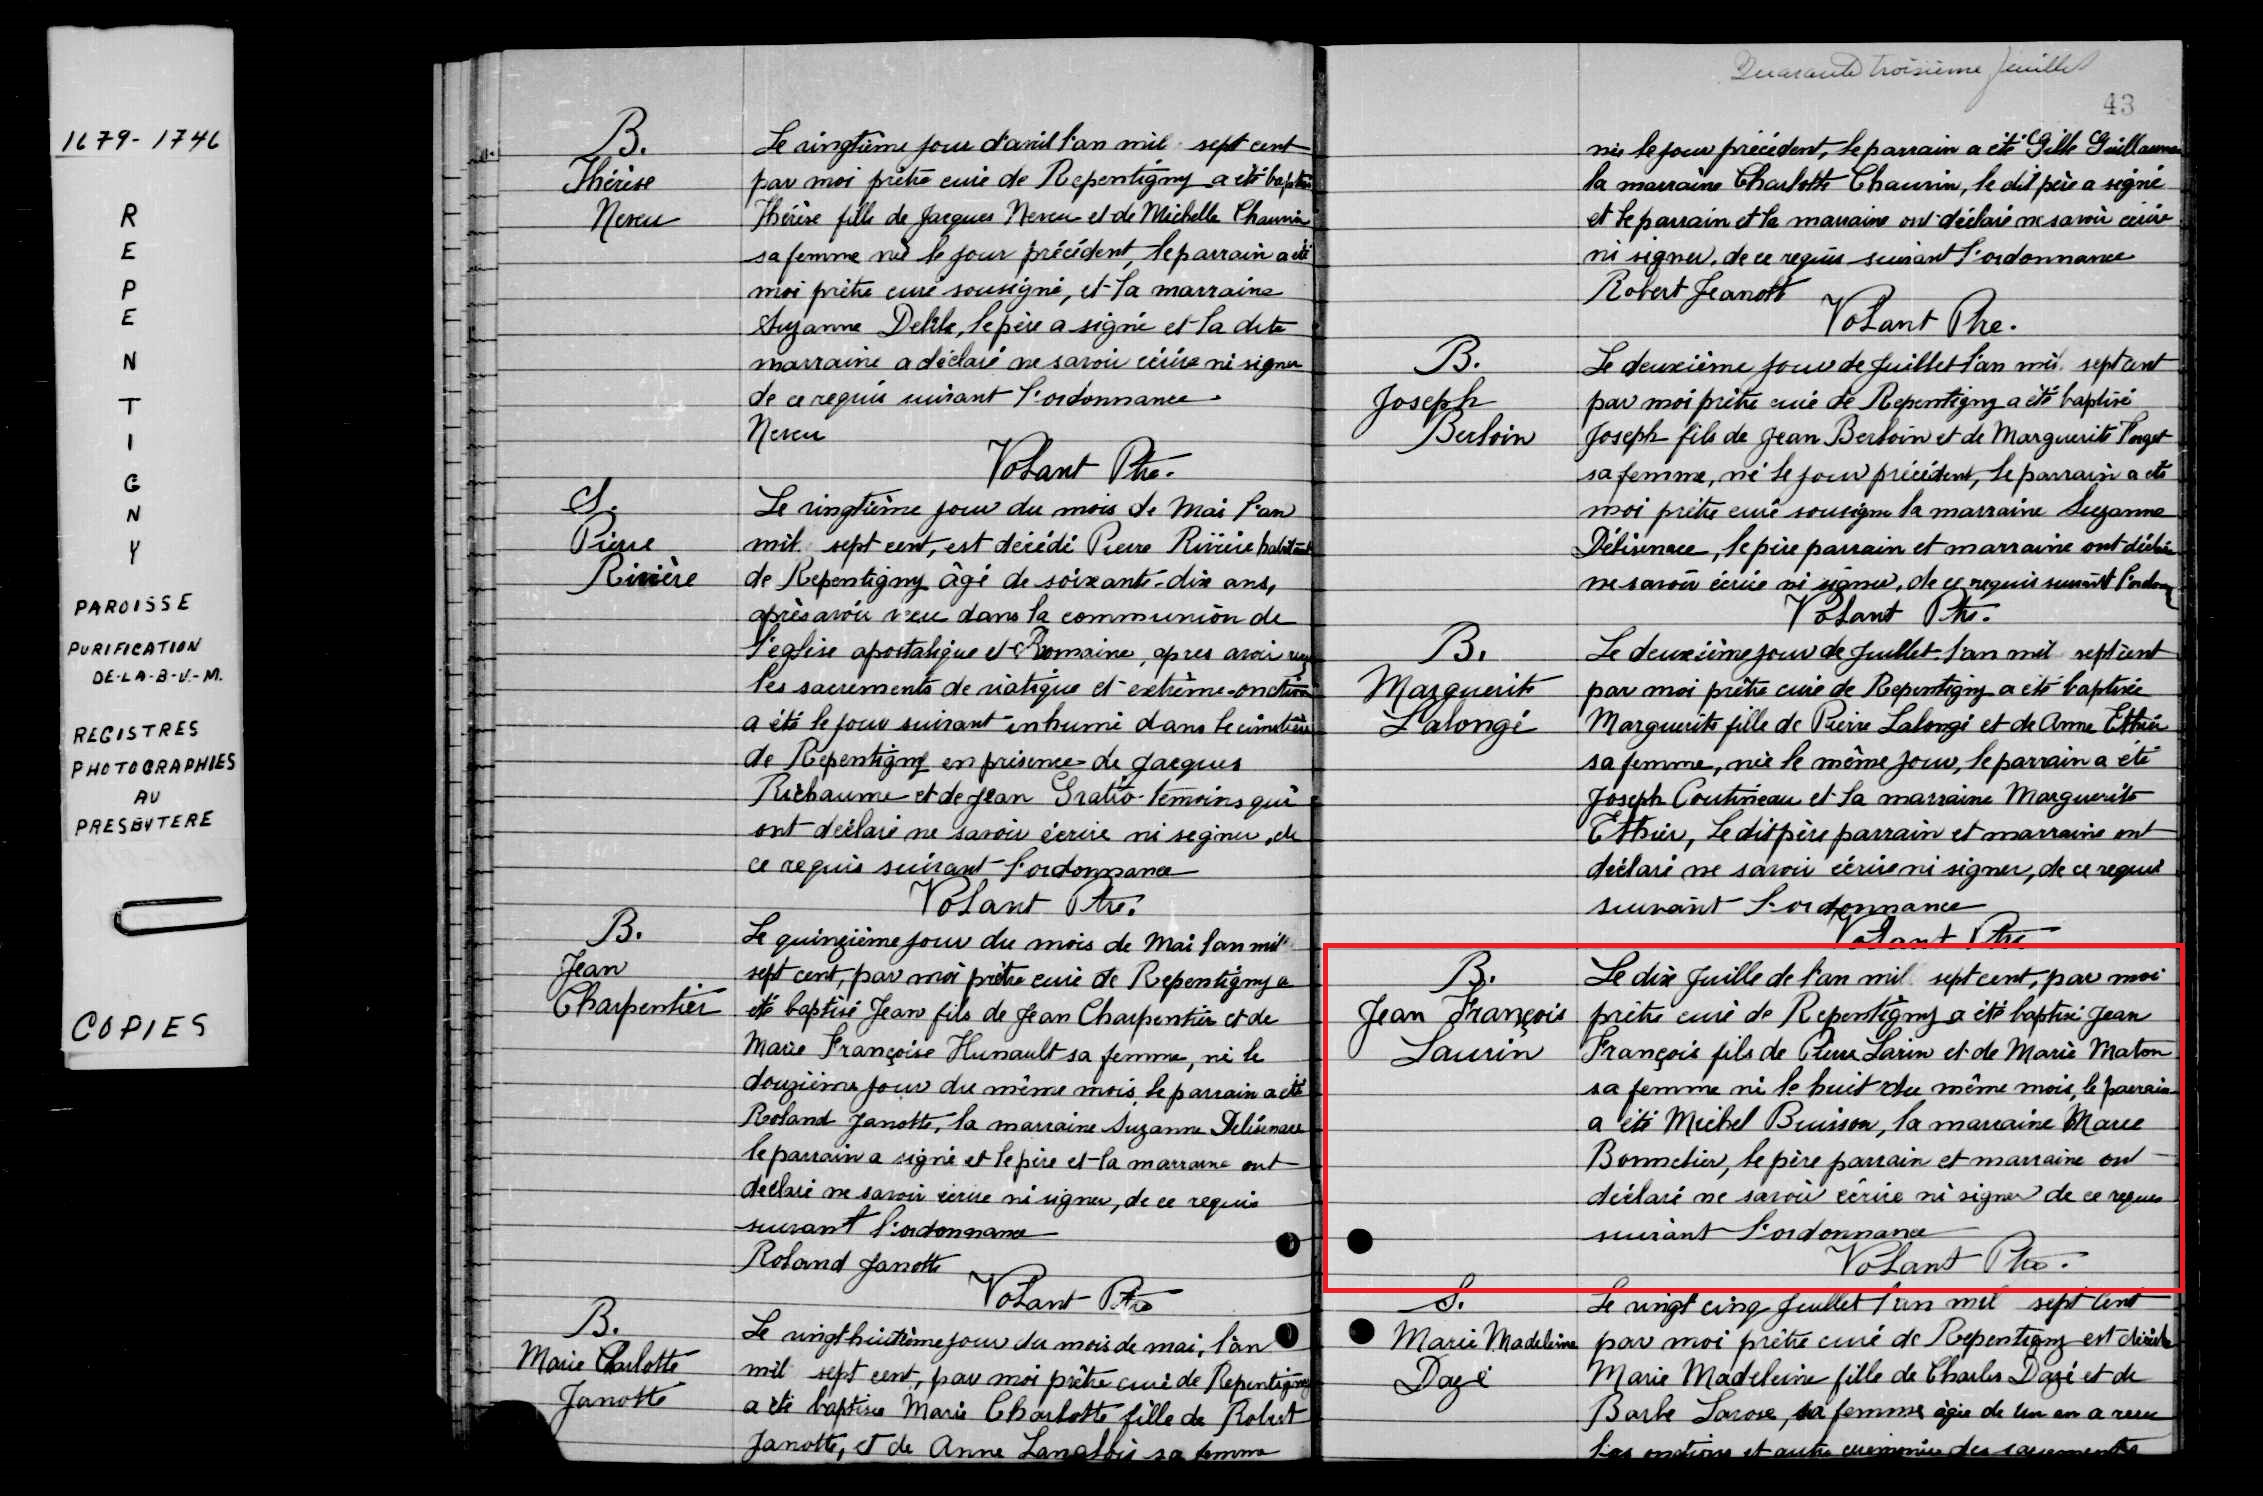 1679-1746
REPENTIGNY
PAROISSE
PURIFICATION
DE-LA-B-V.-M.
REGISTRES
PHOTOGRAPHIES
AU
PRESBYTERE
COPIES
B.
Thérèse
Neveu
Le vingtième jour d'avril l'an mil sept cent
par moi prêtre curé de Repentigny a été baptisée
Thérèse fille de Jacques Neveu et de Michelle Chauvin
sa femme née le jour précédent, le parrain a été
moi prêtre curé sousigné, et la marraine
Suzanne Delisle, le père a signé et la dite
marraine a déclaré ne savoir écrire ni signer
de ce requis suivant l'ordonnance.
Neveu
Volant Ptre.
S.
Pierre
Rivière
Le vingtième jour du mois de Mai l'an
mil sept cent, est décédé Pierre Rivière habitant
de Repentigny âgé de soixante-dix ans,
après avoir vécu dans la communion de
l'église apostolique et Romaine, apres avoir reçu
les sacrements de viatique et extrême-onction
a été le jour suivant inhumé dans le cimetière
de Repentigny en présence de Jacques
Richaume et de Jean Gratio témoins qui
ont déclaré ne savoir écrire ni segner, de
ce requis suivant l'ordonnance
Volant Ptre.
B.
Jean
Charpentier
Le quinzième jour du mois de Mai l'an mil
sept cent, par moi prêtre curé de Repentigny a
été baptisé Jean fils de Jean Charpentier et de
Marie Françoise Hunault sa femme, né le
douzième jour du même mois, le parrain a été
Roland Janotte, la marraine Suzanne Delisenace
le parrain a signé et le père et la marraine ont
déclaré ne savoir écrire ni signer, de ce requis
suivant l'ordonnance
Roland Janotte
Volant Ptre
B.
Marie Charlotte
Janotte
Le vingt huitième jour du mois de mai, l'an
mil sept cent, par moi prêtre curé de Repentigny
a été baptisée Marie Charlotte fille de Robert
Janotte, et de Anne Langlois sa femme
Quarante troisième feuillet
43
née le jour précédent, le parrain a été Gille Guillaume
la marraine Charlotte Chauvin, le dit père a signé
et le parrain et la marraine ont déclaré ne savoir écrire
ni signer, de ce requis suivant l'ordonnance
Robert Jeanott
Volant Ptre.
B.
Joseph
Berloin
Le deuxième jour de Juillet l'an mil sept cent
par moi prêtre curé de Repentigny a été baptisé
Joseph fils de Jean Berloin et de Marguerite Forget
sa femme, né le jour précédent, le parrain a été
moi prêtre curé sousigné la marraine Suzanne
Délisenace, le père parrain et marraine ont déclaré
ne savoir écrire ni signer, de ce requis suivant l'ordon
Volant Ptre.
B.
Marguerite
Lalongé
Le deuxième jour de Juillet l'an mil sept cent
par moi prêtre curé de Repentigny a été baptisée
Marguerite fille de Pierre Lalongé et de Anne Ethier
sa femme, née le même jour, le parrain a été
Joseph Coutineau et la marraine Marguerite
Ethier, le dit père parrain et marraine ont
déclaré ne savoir écrire ni signer, de ce requis
suivant l'ordonnance
Volant Ptre
B.
Jean François
Laurin
Le dix Juille de l'an mil sept cent, par moi
prêtre curé de Repentigny a été baptisé Jean
François fils de Pierre Larin et de Marie Maton
sa femme né le huit du même mois, le parrain
a été Michel Buisson, la marraine Marie
Bonnetier, le père parrain et marraine ont
déclaré ne savoir écrire ni signer de ce requis
suivant l'ordonnance
Volant Ptre.
S.
Marie Madeleine
Dazé
Le vingt cinq Juillet l'an mil sept cent
par moi prêtre curé de Repentigny est décédée
Marie Madeleine fille de Charles Dazé et de
Barbe Larose, sa femme âgée de un an a reçu
les onctions et autre cérémonies des sacrements